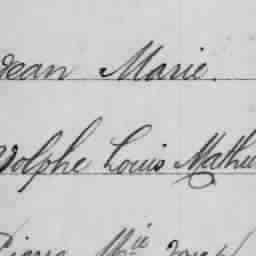 Jean Marie.
Adolphe Louis Mathu
Pierre Mie